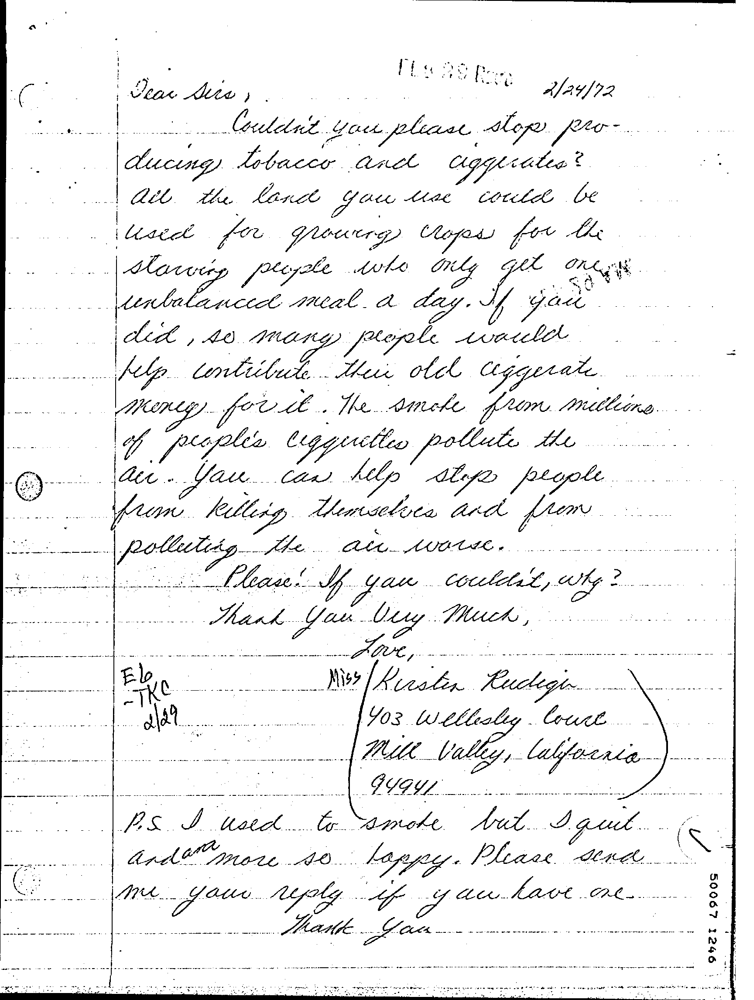 FEB 29 Rec'd
2/24/72
Dear Sirs,
Couldn't you please stop pro-
ducing tobacco and ciggerates?
All the land you use could be
used for growing crops for the
starving people who only get one
unbalanced meal a day. If you
did, so many people would
help contribute their old ciggerate
money for it. The smoke from millions
of people's ciggerettes pollute the
air. You can help stop people
from killing themselves and from
polluting the air worse.
Please! If you couldn't, why?
Thank You Very Much,
Love,
Miss Kirsten Rudigir
403 Wellesley Court
Mill Valley, California
94941
E6
-TKC
2/29
P.S. I used to smoke but I quit
and am more so happy. Please send
me your reply if you have one.
Thank You
50067 1246